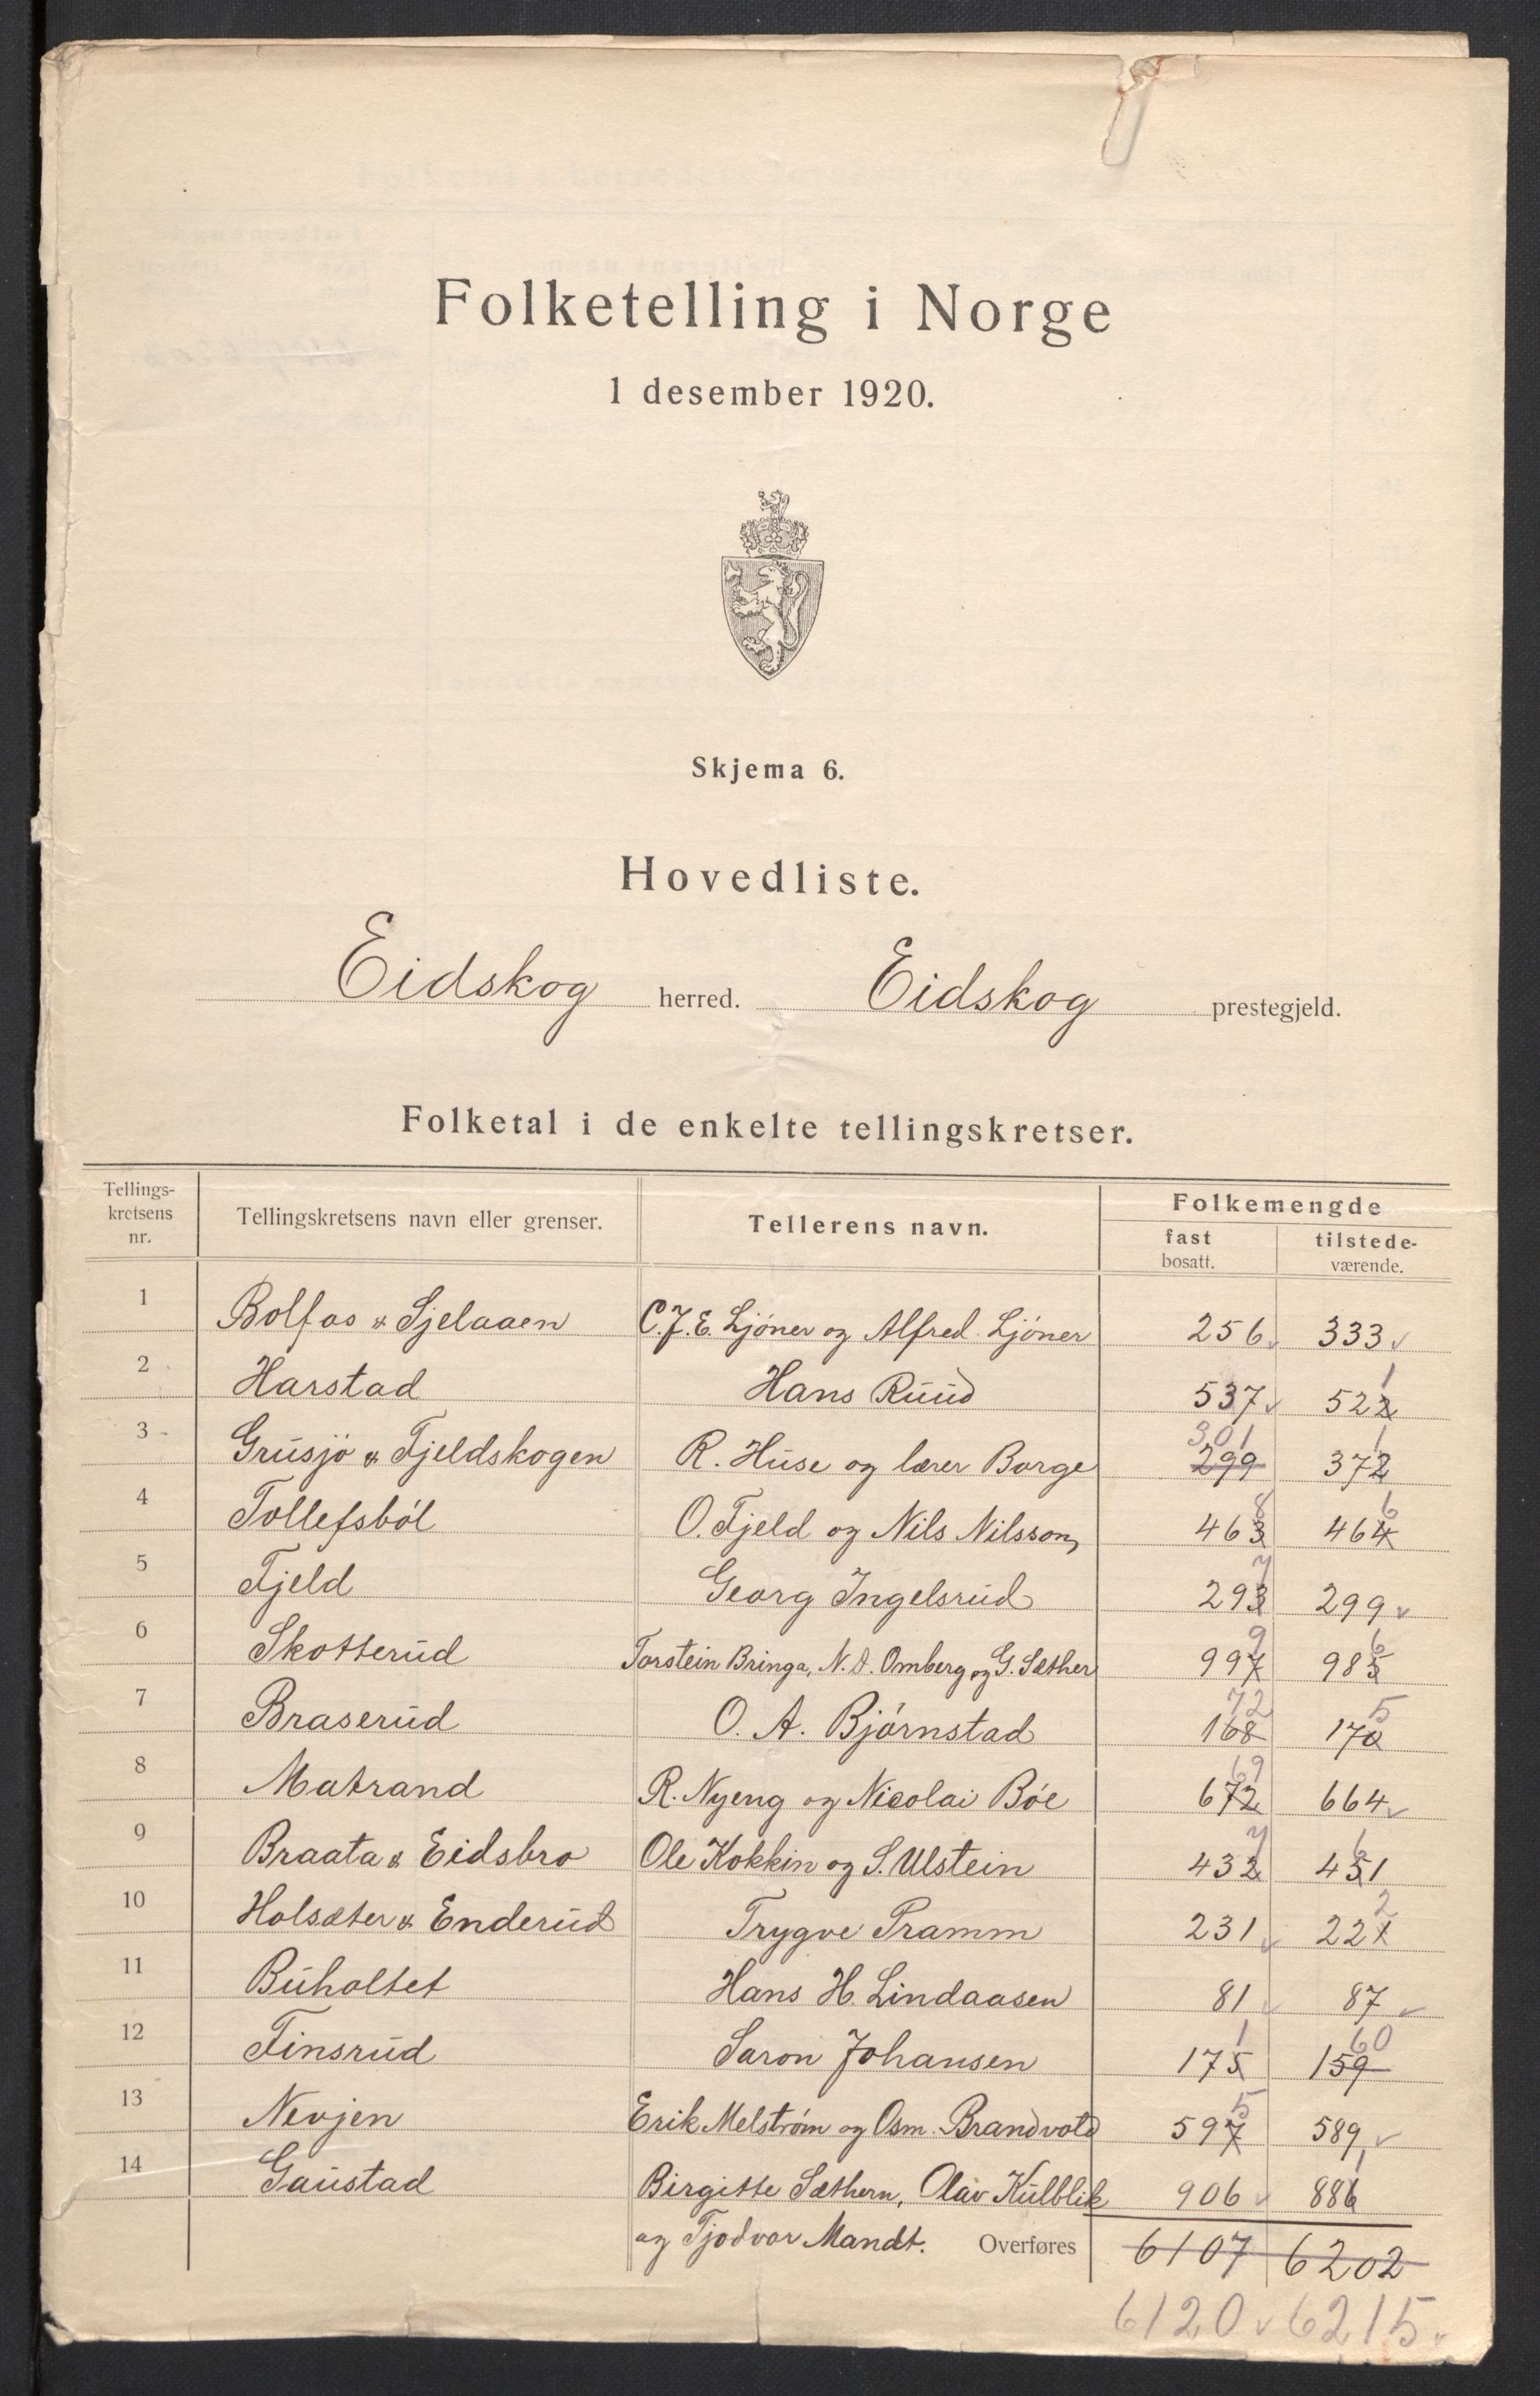 Folketelling i Norge
1 desember 1920.
Skjema 6.
Hovedliste.
Eidskog herred. Eidskog prestegjeld.
Folketal i de enkelte tellingskretser.
Tellings-kretsens nr. Tellingskretsens navn eller grenser. Tellerens navn. Folkemengde
fast bosatt. tilstede-værende.
1 Bolfos & Sjelaaen C.J.E. Ljöner og Alfred Ljöner 256 333
2 Harstad Hans Ruud 537 522 1
3 Grusjö & Fjeldskogen R. Huse og lærer Borge 299 301 372 1
4 Tollefsböl O. Fjeld og Nils Nilsson, 463 8 464 6
5 Fjeld Georg Ingelsrud 293 7 299
6 Skotterud Torstein Bringa, N. O. Omberg og G. Sæther 997 9 985 6
7 Braserud O. A. Björnstad 168 72 170 5
8 Matrand R. Nyeng og Nicolai Böe 672 69 664
9 Braata & Eidsbro Ole Kokkin og S. Ulstein 432 7 451 6
10 Holsæter & Enderud Trygve Pramm 231 221 2
11 Buholtet Hans H. Lindaasen 81 87
12 Finsrud Saron Johansen 175 1 159 60
13 Nevjen Erik Melström og Osm. Brandvold 597 5 589
14 Gaustad Birgitte Sæthern, Olav Kulblik 906 886 1
og Tjodvor Mandt. Overføres 6107 6202
6120 6215